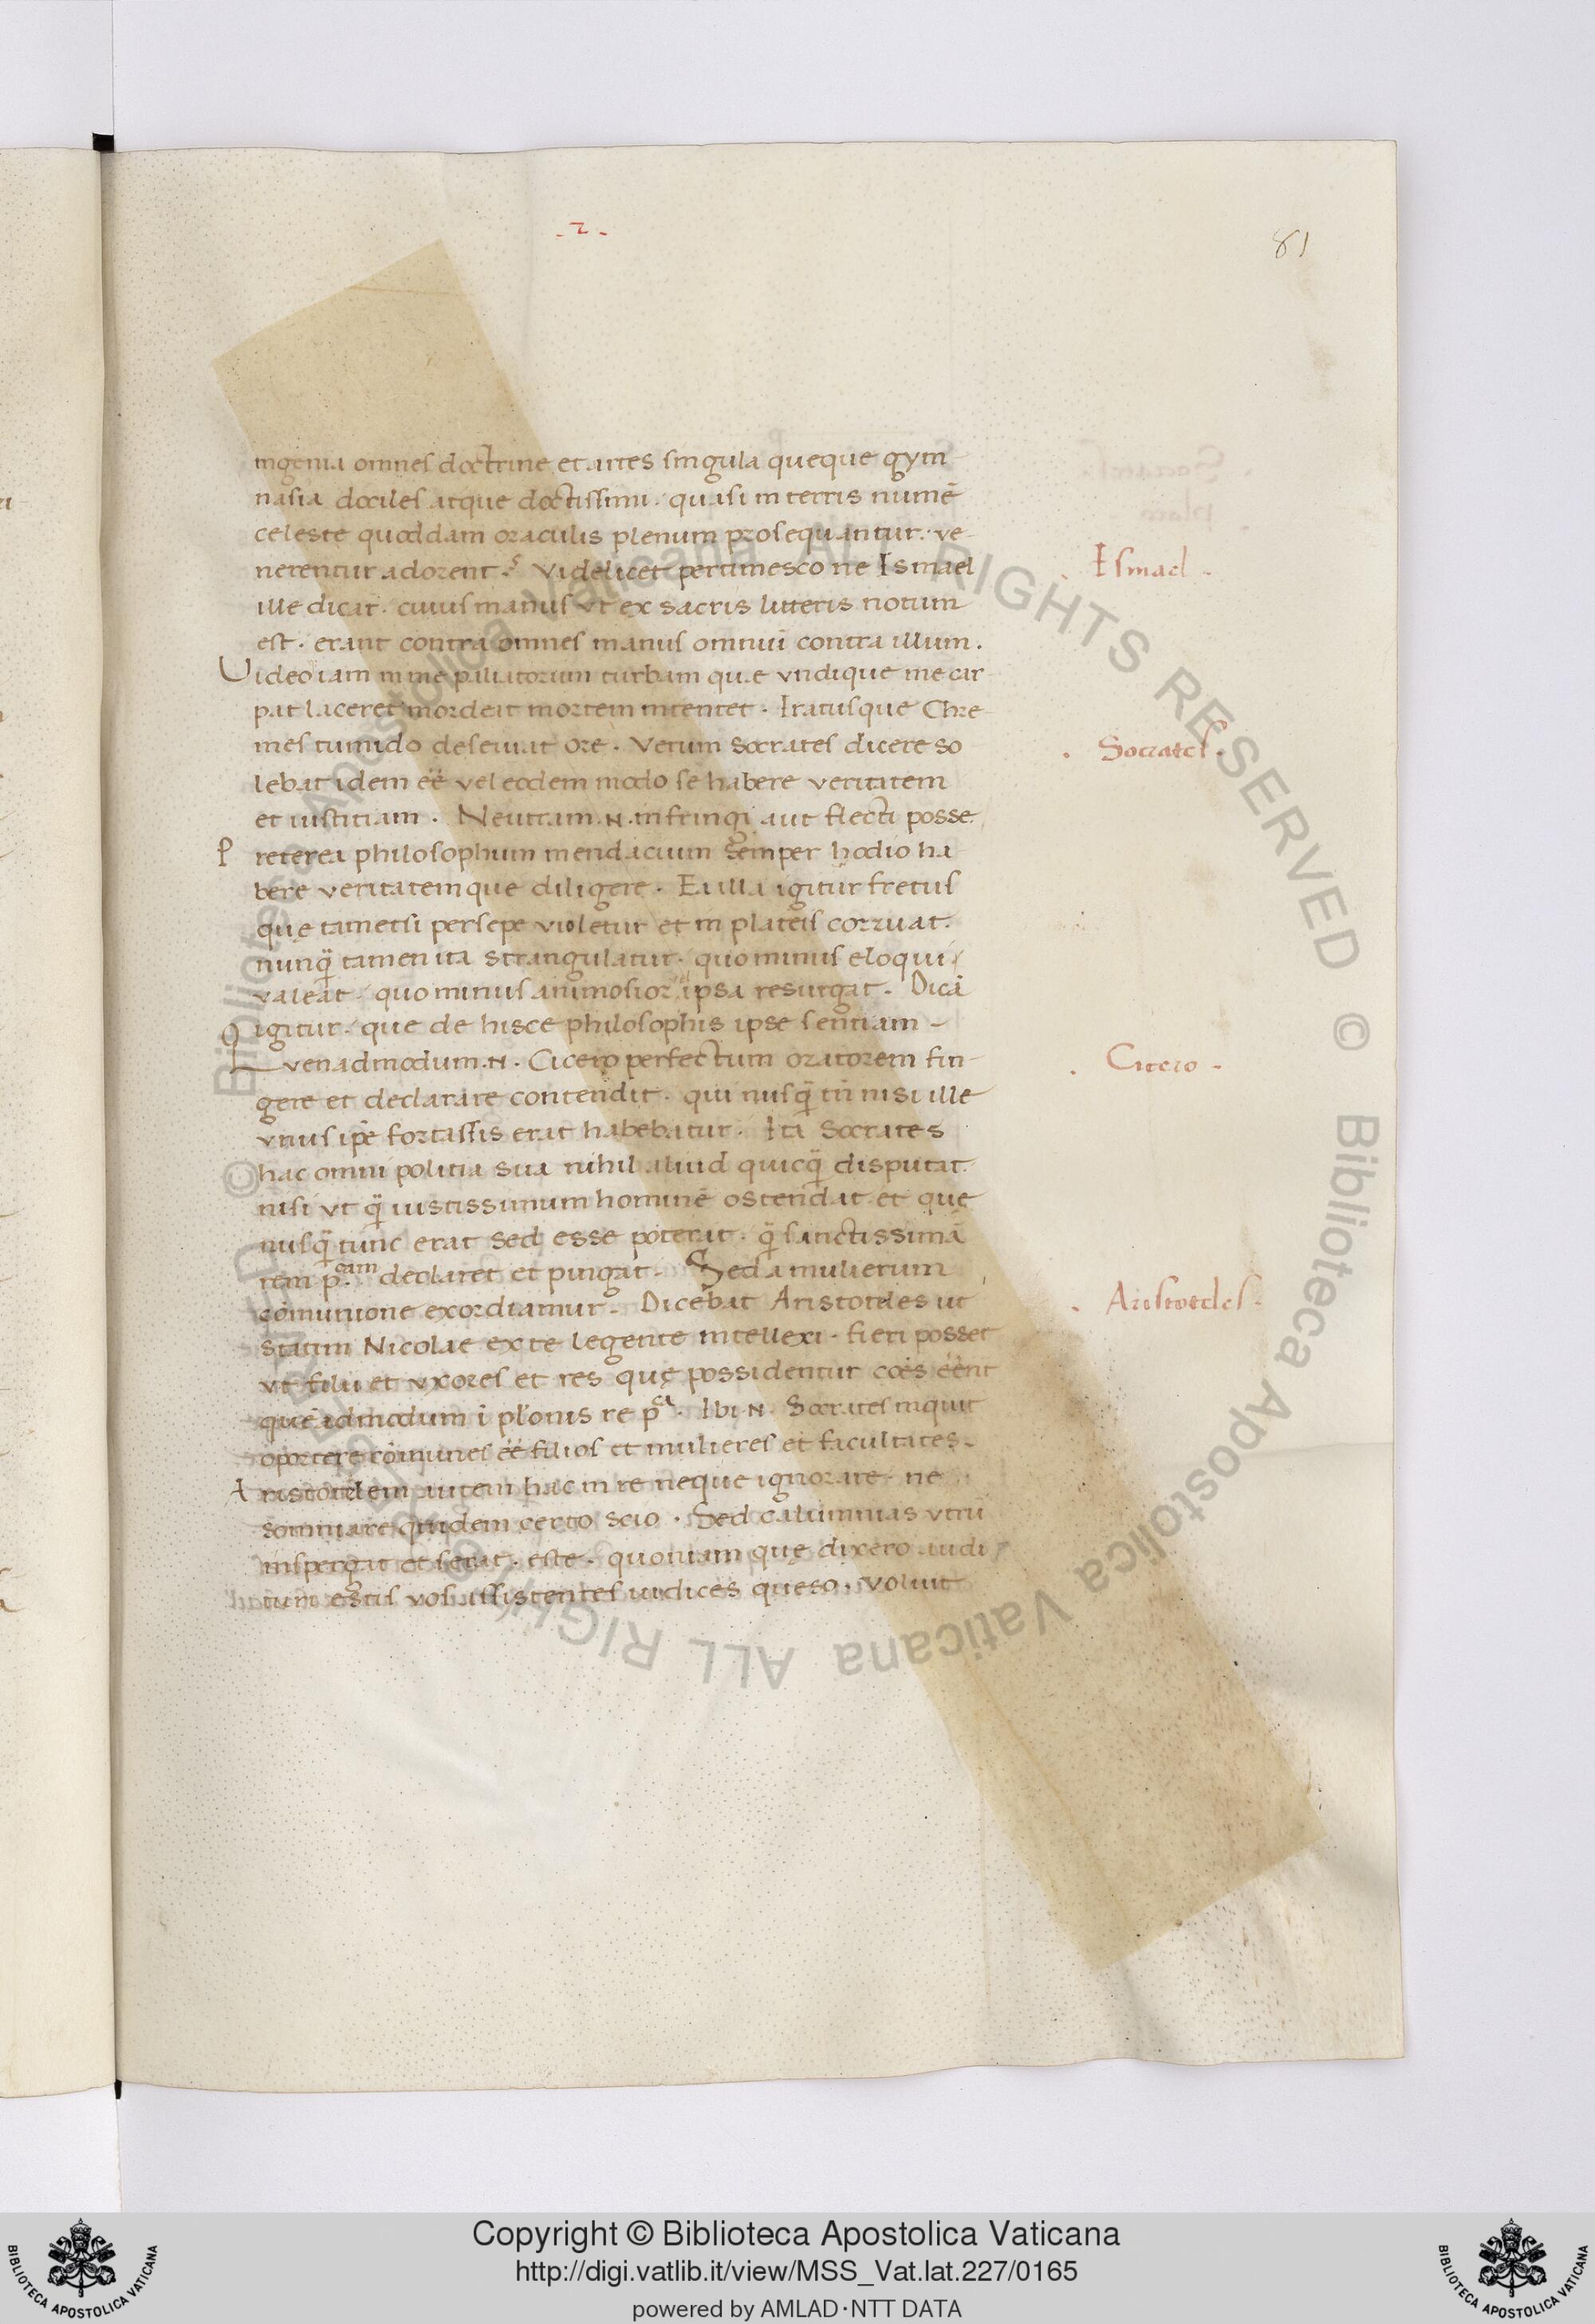 -2-
81
ingenia omnes doctrine et artes singula queque gym-
nasia dociles atque doctissimi. quasi in terris numē
celeste quoddam oraculis plenum prosequantur. ve-
nerentur adorent? Videlicet pertimesco ne Ismael
Ismael.
ille dicar. cuius manus vt ex sacris litteris notum
est. erant contra omnes manus omniū contra illum.
Uideo iam in me palliatorum turbam que vndique me car-
pat laceret mordeat mortem intentet. Iratusque Chre-
mes tumido deseuiat ore. Verum Socrates dicere so
Socrates.
lebat idem eē vel eodem modo se habere veritatem
et iustitiam. Neutram .N. infringi aut flecti posse.
Preterea philosophum mendacium semper hodio ha
bere veritatemque diligere. Ea illa igitur fretus
que tametsi persepe violetur et in plateis corruat.
nunq̄ tamen ita strangulatur. quominus eloqui
valeat. quominus animosior ipsa resurgat. Dicā
igitur. que de hisce philosophis ipse sentiam -
Quenadmodum .N. Cicero perfectum oratorem fin-
Cicero.
gere et declarare contendit. qui nusq̄ tn̄ nisi ille
vnus ipē fortassis erat habebatur. Ita Socrates
hac omni politia sua nihil aliud quicq̄ disputat.
nisi vt q̄ iustissimum hominē ostendat et que
nusq̄ tunc erat sed esse poterat. q̄ sanctissimā
rem p.cam declaret et pingat. Sed a mulierum
cōmunione exordiamur. Dicebat Aristoteles ut
Aristoteles.
statim Nicolae ex te legente intellexi. fieri posset
vt filii et vxores et res quę possidentur cōēs eēnt
quēadmodum ī plōnis re p.ca. Ibi .N. Socrates inquit
oportere cōmunes eē filios et mulieres et facultates.
Aristotelem autem hac in re neque ignorare. ne
somniare quidem certo scio. Sed calumnias vtrū
inspergat et serat. este. quoniam quę dixero audi
tum estis vos assistentes iudices queso. Voluit
Copyright © Biblioteca Apostolica Vaticana
http://digi.vatlib.it/view/MSS_Vat.lat.227/0165
powered by AMLAD·NTT DATA
BIBLIOTECA APOSTOLICA VATICANA
BIBLIOTECA APOSTOLICA VATICANA
© Biblioteca Apostolica Vaticana ALL RIGHTS RESERVED © Biblioteca Apostolica Vaticana ALL RIGHTS RESERVED